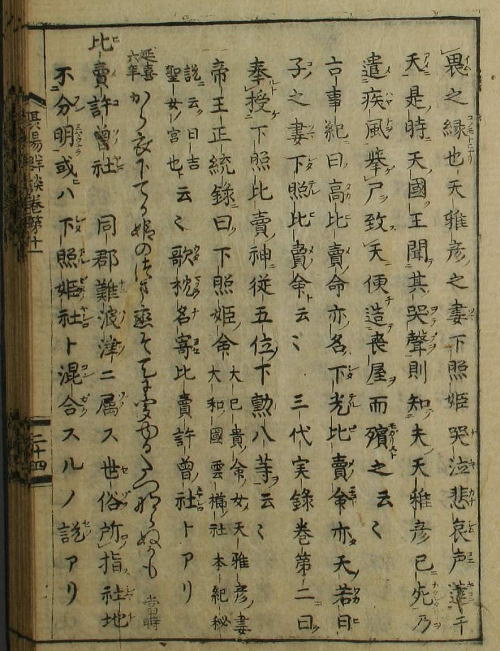 畏之縁也天雅彦之妻下照姫哭泣悲哀声達于
天是時天國玉聞其哭聲則知夫天雅彦已死乃
遣疾風挙尸致天便造喪屋而殯之云々
古事紀曰高比賣命亦名下光比賣命亦天若日
子之妻下照比賣命云々 三代実録巻第二曰
奉授下照比賣神従五位下勲八等云々
帝王正統録曰下照姫命大已貴命女天雅彦妻
大和國雲櫛社本紀秘
説云日吉
聖女宮也云々歌枕名寄比賣許曽社トアリ
延喜
六年からころも下てる姫の
當時
比賣許曽社 同郡難波津ニ属ス世俗所指社地
不分明或ハ下照姫社ト混合スルノ説アリ
談巻第十一
二十四